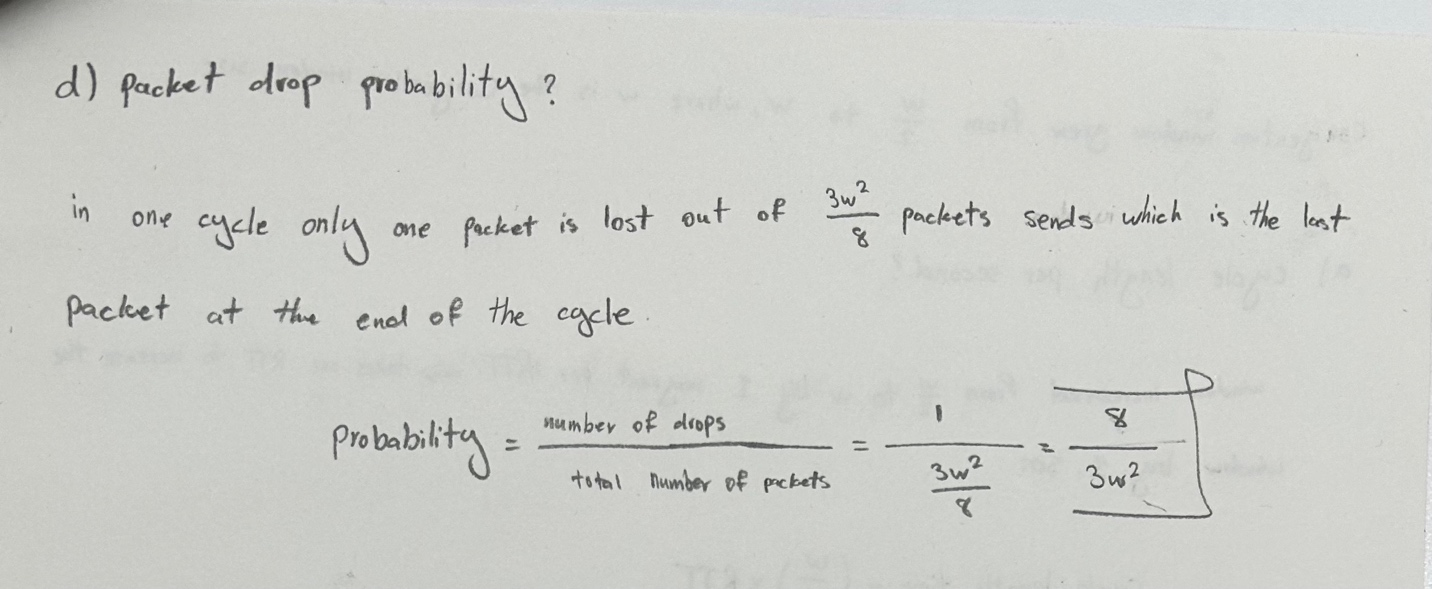 d) packet drop probability?
in one cycle only one packet is lost out of 3w²/8 packets sends which is the last
packet at the end of the cycle.
probability = number of drops / total number of packets = 1 / (3w²/8) = 8 / 3w²